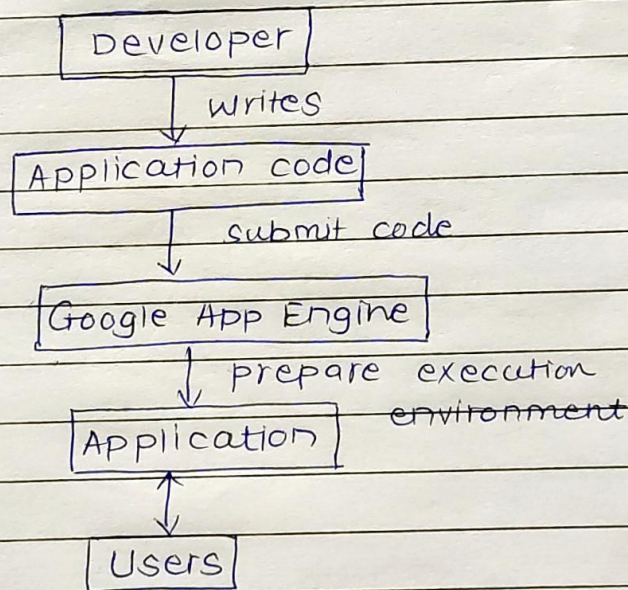 Developer
writes
Application code
submit code
Google App Engine
prepare execution
environment
Application
Users